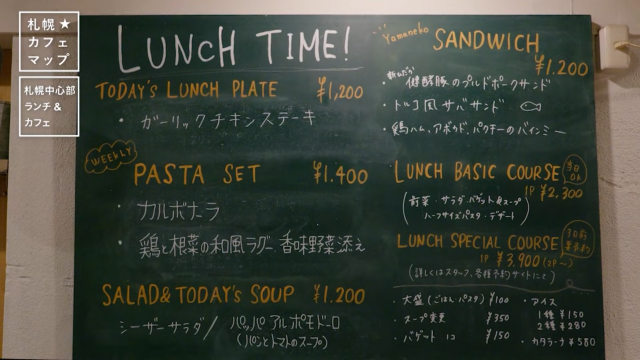 札幌★
カフェ
マップ
札幌中心部
ランチ&
カフェ
LUNCH TIME!
TODAY'S LUNCH PLATE ¥1,200
・ガーリックチキンステーキ
WEEKLY
PASTA SET ¥1.400
・カルボナーラ
・鶏と根菜の和風ラグー 香味野菜添え
SALAD&TODAY'S SOUP ¥1.200
シーザーサラダ/パッパ アル ポモドーロ
(パンとトマトのスープ)
Yamaneko
SANDWICH
¥1.200
・健酵豚のプルドポークサンド
・トルコ風サバサンド
・鶏ハム、アボカド、パクチーのバインミー
LUNCH BASIC COURSE 当日OK
1P ¥2,300
(前菜・サラダ・バゲット&スープ
ハーフサイズパスタ・デザート)
LUNCH SPECIAL COURSE
1P ¥3,900 (2P〜)
(詳しくはスタッフ、各種予約サイトにて)
・大盛(ごはん・パスタ) ¥100
・スープ変更 ¥350
・バゲット 1コ ¥150
・アイス
1種 ¥150
2種 ¥280
・カタラーナ ¥580